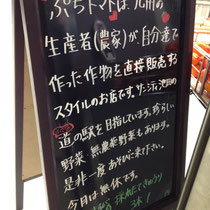 ぷちトマトは、九州の
生産者(農家)が、自分達で
作った作物を直接販売する
スタイルのお店です。サンシティ池田内
道の駅を目指しています。珍らしい
野菜、無農薬野菜もあります。
是非一度あそびに来て下さい。
今月は無休です。